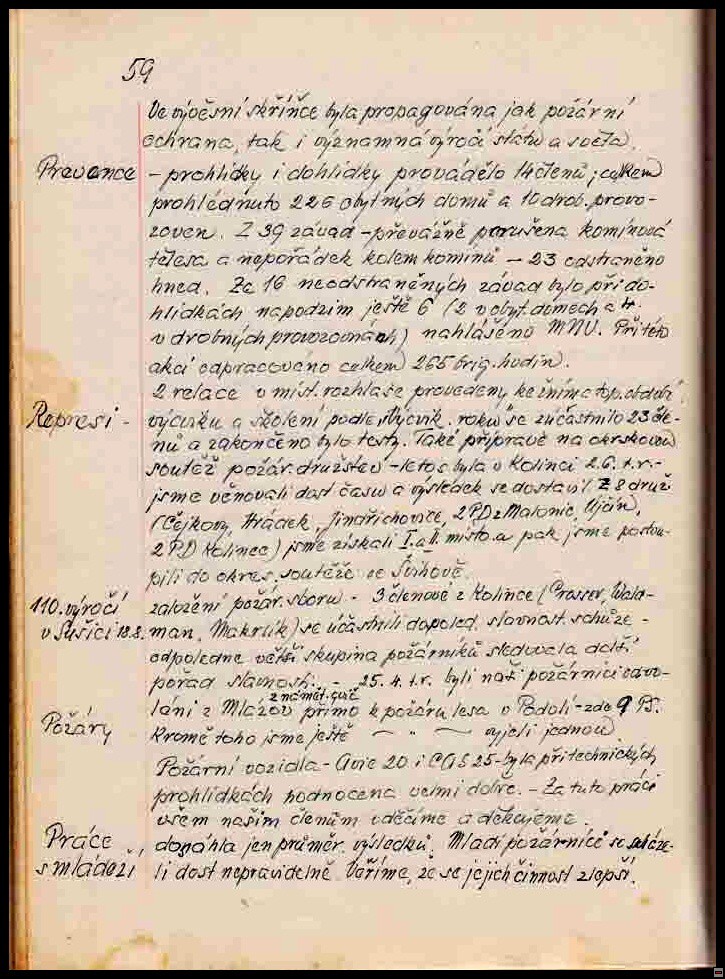 59
Ve vývěsní skříňce byla propagována jak požární
ochrana, tak i významná výročí státu a světa.
Prevence - prohlídky i dohlídky provádělo 14 členů; celkem
prohlédnuto 226 obytných domů a 10 drob. provo-
zoven. Z 39 závad - převážně porušena komínová
tělesa a nepořádek kolem komínů - 23 odstraněno
hned. Ze 16 neodstraněných závad bylo při do-
hlídkách napodzim ještě 6 (2 v obyt. domech a 4
v drobných provozovnách) nahlášeno MNV. Při této
akci odpracováno celkem 265 brig. hodin.
2 relace v míst. rozhlase provedeny ke žním a top. období
Represi - výcviku a školení podle "Výcvik. roku" se zúčastnilo 23 čle-
nů a zakončeno bylo testy. Také přípravě na okrskovou
soutěž požár. družstev - letos byla v Kolinci 2.6. t.r. -
jsme věnovali dost času a výsledek se dostavil Z 8 druž.
(Čejkovy, Hrádek, Jindřichovice, 2 PD z Malonic, Ujčín,
2 PD Kolinec) jsme získali I. a II. místo a pak jsme postou-
pili do okres. soutěže ve Švihově.
110. výročí založení požár. sboru - 3 členové z Kolince (Prosser, Wald-
v Sušici 18.8. man, Makrlík) se účastnili dopoled. slavnost. schůze -
odpoledne větší skupina požárníků sledovala další
pořad slavnosti. - 25.4. t.r. byli naši požárníci odvo-
z námět. cvič.
láni z Mlázov přímo k požáru lesa v Podolí - zde 9 PS.
Požáry Kromě toho jsme ještě — " — vyjeli jednou
Požární vozidla - Avie 20 i CAS 25 - byla při technických
prohlídkách hodnocena velmi dobře. - Za tuto práci
všem našim členům vděčíme a děkujeme.
Práce dosáhla jen průměr. výsledků. Mladí požárníci se scháze-
s mládeží li dost nepravidelně. Věříme, že se jejich činnost zlepší.